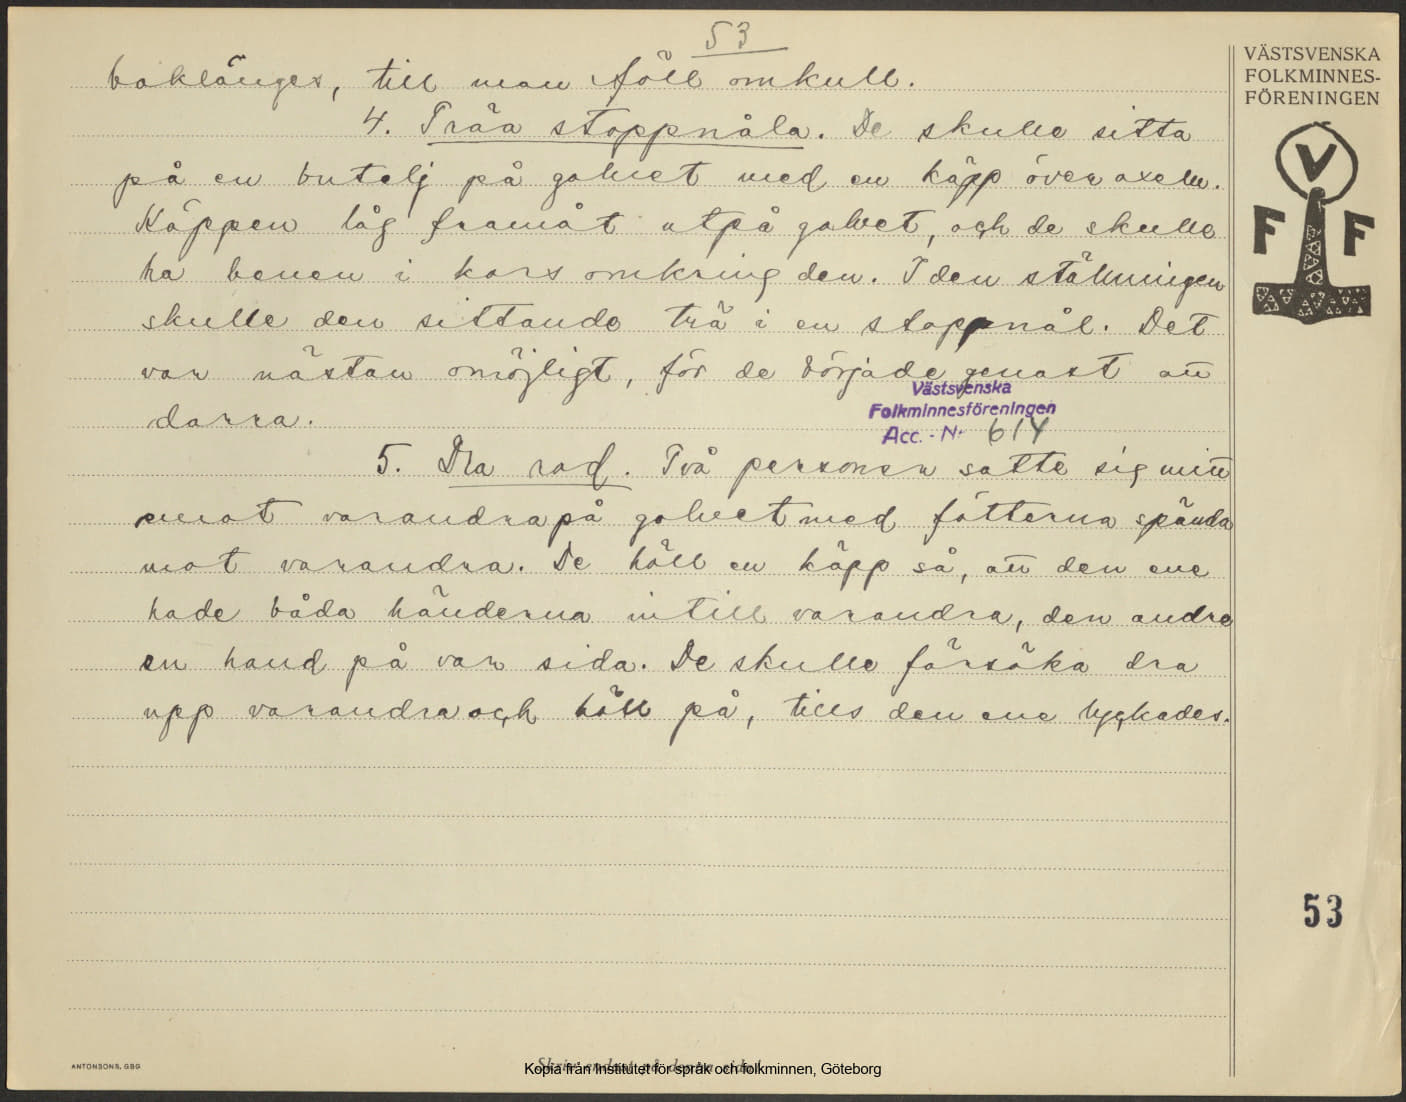 53
baklänges, till man föll omkull.
4. Träa stoppnåla. De skulle sitta
på en butelj på golvet med en käpp över axeln.
Käppen låg framåt utpå golvet, och de skulle
ha benen i kors omkring den. I den ställningen
skulle den sittande trä i en stoppnål. Det
var nästan omöjligt, för de började genast att
darra.
5. Dra rad. Två personer satte sig mitt
emot varandra på golvet med fötterna spända
mot varandra. De höll en käpp så, att den ene
hade båda händerna intill varandra, den andre
en hand på var sida. De skulle försöka dra
upp varandra och höll på, tills den ene lyckades.
Västsvenska
Folkminnesföreningen
Acc. - Nr 614
VÄSTSVENSKA
FOLKMINNES-
FÖRENINGEN
V
F F
53
ANTONSONS, GBG
Skriv endast på denna sida!
Kopia från Institutet för språk och folkminnen, Göteborg